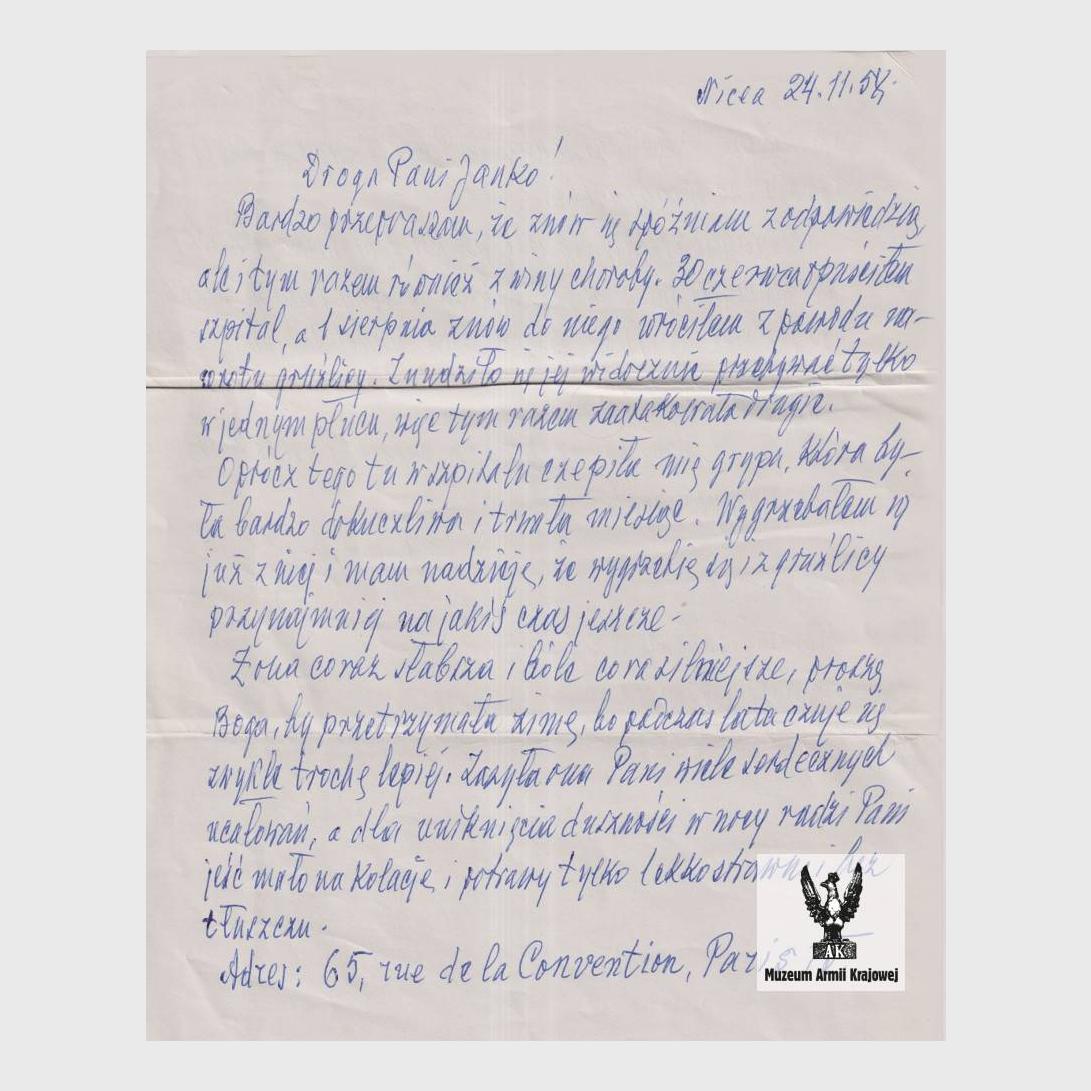 Nicea 24.11.54r.
Droga Pani Janko!
Bardzo przepraszam, że znów się spóźniam z odpowiedzią,
ale i tym razem również z winy choroby. 30 czerwca opuściłem
szpital, a 1 sierpnia znów do niego wróciłem z powodu na-
wrotu gruźlicy. Znudziło się jej widocznie przebywać tylko
w jednym płucu, więc tym razem zaatakowała drugie.
Oprócz tego tu w szpitalu czepiła mię grypa, która by-
ła bardzo dokuczliwa i trwała miesiąc. Wygrzebałem się
już z niej i mam nadzieję, że wygrzebię się i z gruźlicy
przynajmniej na jakiś czas jeszcze.
Żona coraz słabsza i bóle coraz silniejsze, proszę
Boga, by przetrzymała zimę, bo podczas lata czuje się
zwykle trochę lepiej. Zasyła ona Pani wiele serdecznych
ucałowań, a dla uniknięcia duszności w nocy radzi Pani
jeść mało na kolację i potrawy tylko lekkostrawne i bez
tłuszczu.
Adres: 65, rue de la Convention, Paris
AK
Muzeum Armii Krajowej